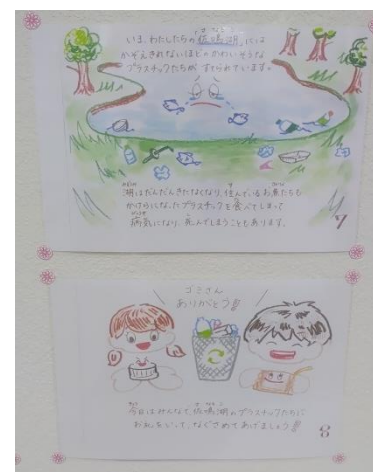 いま、わたしたちの佐鳴湖には
かぞえきれないほどのかわいそうな
プラスチックたちが すてられています。
湖はだんだんきたなくなり、住んでいるお魚たちも
かけらになったプラスチックを食べてしまって
病気になり、死んでしまうこともあります。
7
ゴミさん
ありがとう!!
今日はみんなで、佐鳴湖のプラスチックたちに
お礼をいって、なぐさめてあげましょう!!
8